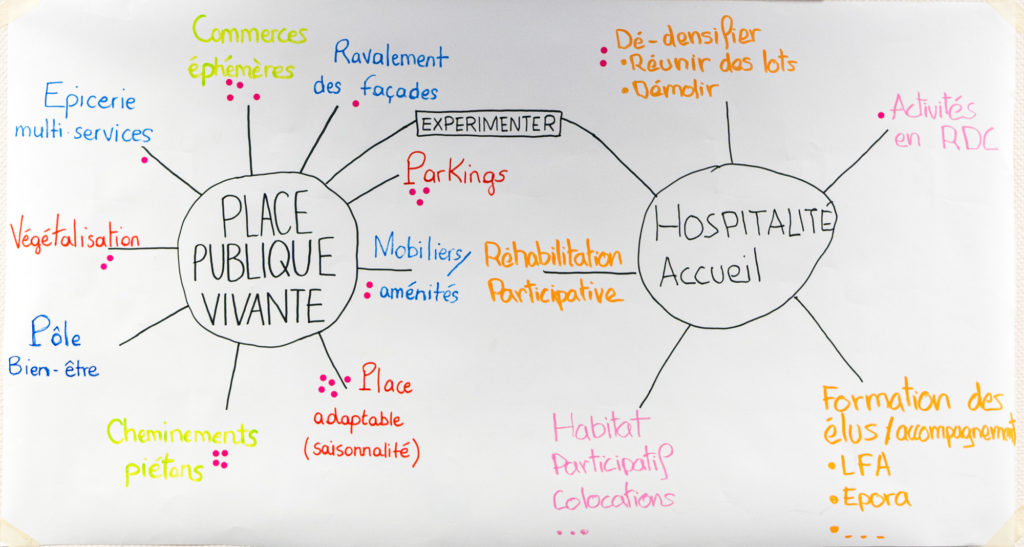 Commerces
éphémères
Ravalement
des façades
Epicerie
multi-services
Végétalisation
Pôle
Bien-être
Cheminements
piétons
Place
adaptable
(saisonnalité)
Mobiliers/
aménités
Parkings
PLACE
PUBLIQUE
VIVANTE
EXPERIMENTER
HOSPITALITÉ
Accueil
Dé-densifier
• Réunir des lots
• Démolir
Activités
en RDC
Réhabilitation
Participative
Habitat
Participatif
Colocations
...
Formation des
élus/accompagnement
• LFA
• Epora
• ...